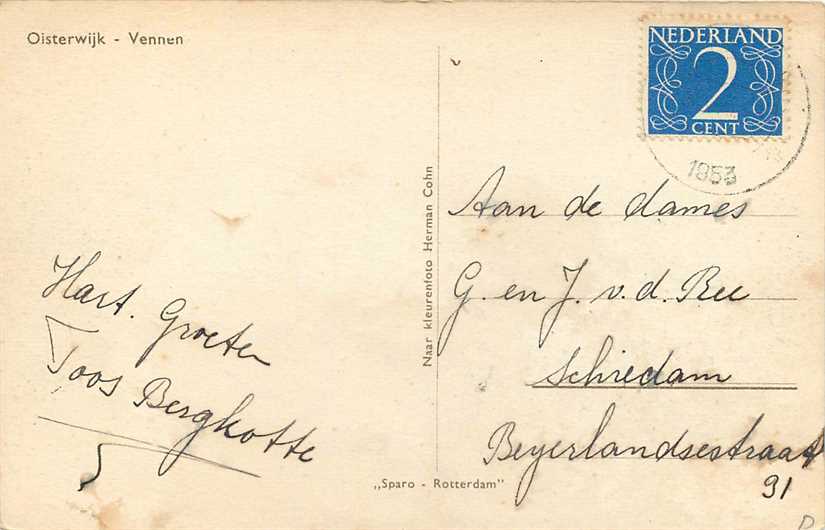 Oisterwijk - Vennen
NEDERLAND
2
CENT
1953
Hart. Groeten
Toos Bergkotte
Naar kleurenfoto Herman Cohn
Aan de dames
G. en J. v. d. Bee
Schiedam
Beyerlandsestraat
91
„Sparo - Rotterdam"